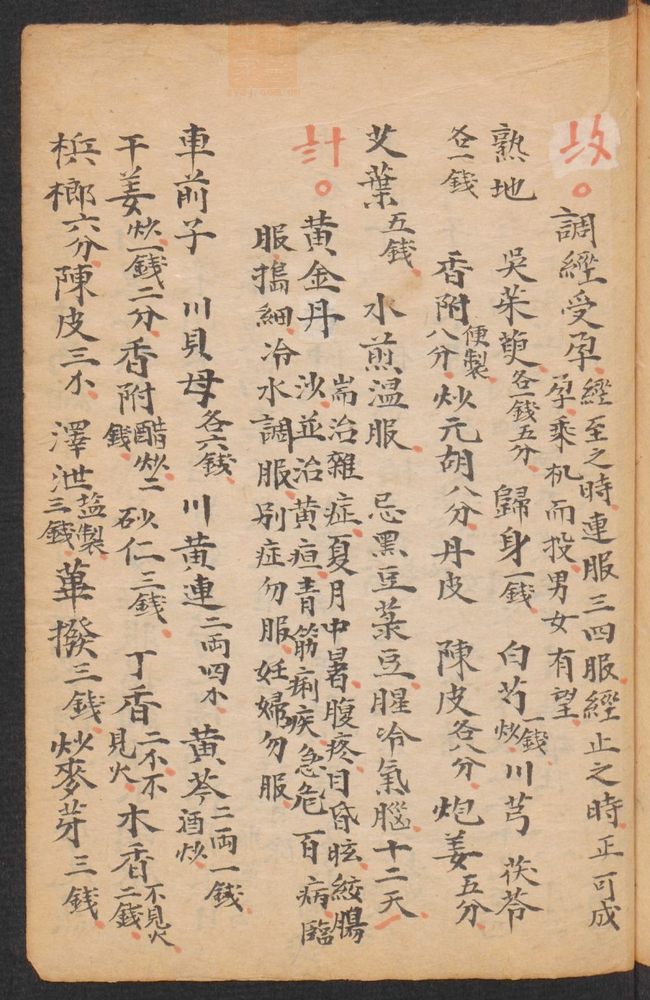 攻。
調經受孕 經至之時連服三四服經止之時正可成
孕乘机而投男女有望
熟地 吳茱萸各一錢五分 歸身一錢 白芍一錢炒 川芎 茯苓
各一錢 香附便製八分 炒元胡八分 丹皮 陳皮各八分 炮姜五分
艾葉五錢 水煎温服 忌黑豆菉豆腥冷氣腦十二天
計。
黄金丹 耑治雜症夏月中暑腹疼目昏眩絞腸
沙並治黄疸青筋痢疾急危百病臨
服搗細冷水調服别症勿服妊婦勿服
車前子 川貝母各六錢 川黄連二両四小 黄芩二両一錢酒炒
干姜炒一錢二分 香附醋炒二錢 砂仁三錢 丁香二小不見火 木香不見火二錢
梹榔六分 陳皮三小 澤泄盐製三錢 蓽撥三錢 炒麥芽三錢